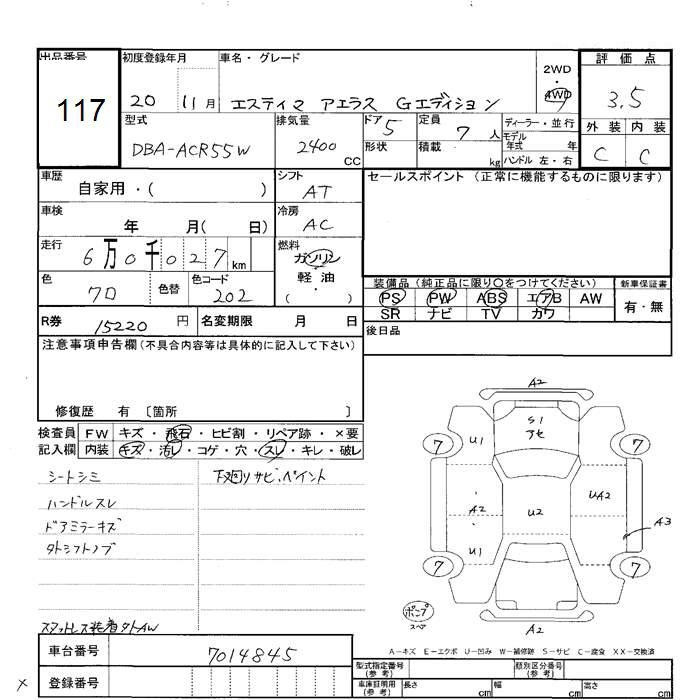 出品番号
117
初度登録年月
20 11月
車名・グレード
エスティマ アエラス Gエディション
2WD
・
4WD
評価点
3.5
外装 内装
C C
型式
DBA-ACR55W
排気量
2400 CC
ドア 5
形状
定員 7 人
積載 kg
ディーラー・並行
モデル
年式 年
ハンドル 左・右
車歴
自家用・( )
シフト
AT
セールスポイント (正常に機能するものに限ります)
車検
年 月( 日)
冷房
AC
走行
6万0千027km
燃料
ガソリン
軽・油
( )
色
クロ
色替
色コード
202
装備品(純正品に限り○をつけてください)
PS PW ABS エアB AW
SR ナビ TV カワ
新車保証書
有・無
R券 15220 円
名変期限 月 日
後日品
注意事項申告欄(不具合内容等は具体的に記入して下さい)
修復歴 有 〔箇所 〕
検査員 FW キズ・飛石・ヒビ割・リペア跡・×要
記入欄 内装 キズ・汚レ・コゲ・穴・スレ・キレ・破レ
シートシミ
下廻りサビ・ペイント
ハンドルスレ
ドアミラーキズ
タトシフトノブ
スタットレス装着タトAW
A2
S1
アセ
U1
7
7
A2
U2
UA2
A3
U1
7
7
ポンプ
スペア
A2
A-キズ E-エクボ U-凹み W-補修跡 S-サビ C-腐食 XX-交換済
車台番号
7014845
登録番号
×
型式指定番号
(参考)
類別区分番号
(参考)
車庫証明用
(参考)
長さ cm
幅 cm
高さ cm